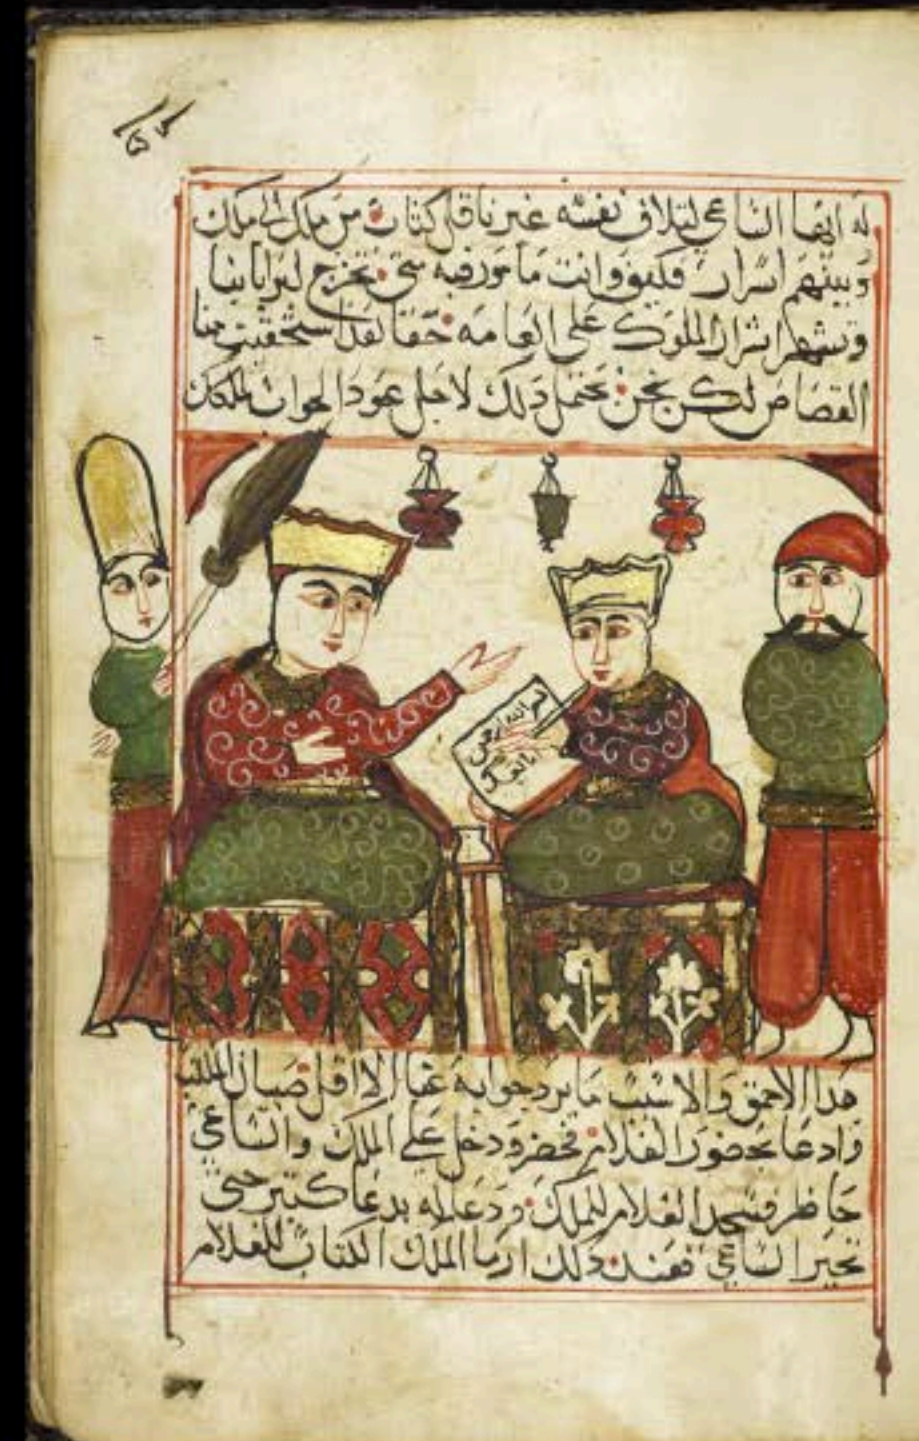 له ايها الساعي لتلاف نفسه غير ناقل كتاب من ملك الى ملك
وبينهم اسرار فكيف وانت ما تورقبه شي تخرج لبرا باينا
وتشهر اسرار الملوك على العامه حقا لقد استحقيت منا
القصاص لكن نحن نحتمل ذلك لاجل عود الجواب لملكك
بسم الله الرحمن
هذا الاحمق والاسبب ما يرد جوابه غير الا اقل صبيان المكتب
وادعا بحضور الغلام فحضر ودخل على الملك والساعي
حاظر فسجد الغلام للملك ودعا له بدعا كتير حتى
تحير الساعي فعند ذلك ارما الملك الكتاب للغلام